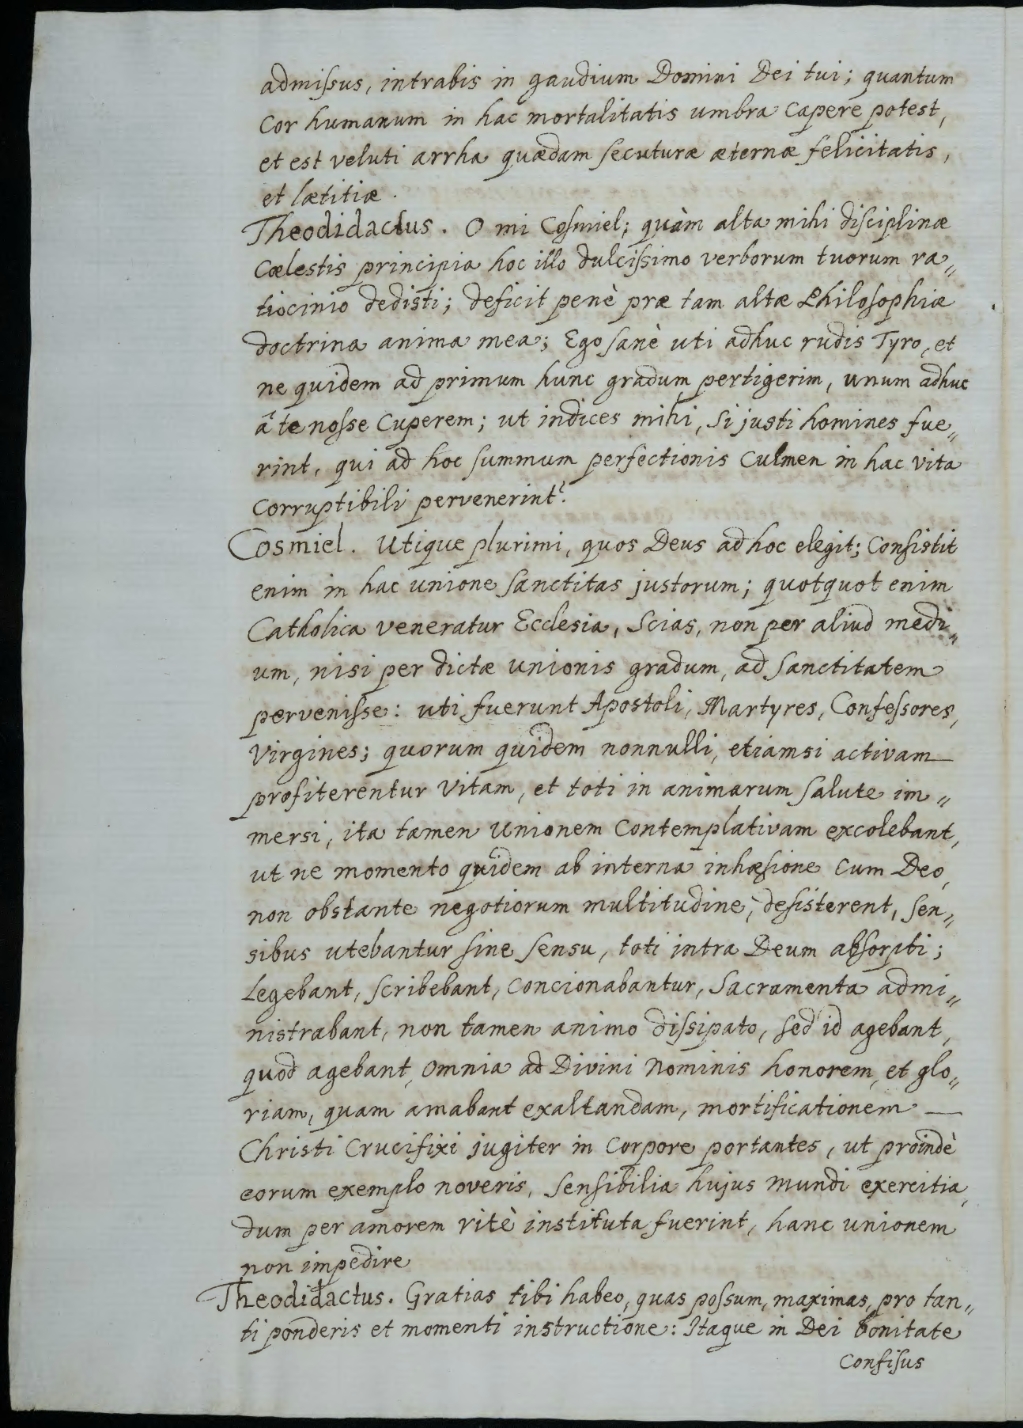 admissus, intrabis in gaudium Domini Dei tui; quantum
Cor humanum in hac mortalitatis umbra Capere potest,
et est veluti arrha quædam secuturæ æternæ felicitatis,
et lætitiæ.
Theodidactus. O mi Cosmiel; quàm alta mihi disciplinæ
Cœlestis principia hoc illo dulcissimo verborum tuorum ra„
tiocinio dedisti; deficit penè præ tam altæ Philosophiæ
doctrina anima mea; Ego sanè uti adhuc rudis Tyro, et
ne quidem ad primum hunc gradum pertigerim, unum adhuc
â te nosse Cuperem; ut indices mihi, Si justi homines fue„
rint, qui ad hoc summum perfectionis Culmen in hac vita
Corruptibili pervenerint?
Cosmiel. Utique plurimi, quos Deus ad hoc elegit; Consistit
enim in hac unione sanctitas justorum; quotquot enim
Catholica veneratur Ecclesia, Scias, non per aliud medi„
um, nisi per dictæ unionis gradum, ad sanctitatem
pervenisse: uti fuerunt Apostoli, Martyres, Confessores,
Virgines; quorum quidem nonnulli, etiamsi activam
profiterentur Vitam, et toti in animarum salute im„
mersi, ita tamen Unionem Contemplativam excolebant,
ut ne momento quidem ab interna inhæsione Cum Deo,
non obstante negotiorum multitudine, desisterent, sen„
sibus utebantur sine sensu, toti intra Deum absorpti;
Legebant, scribebant, Concionabantur, Sacramenta admi„
nistrabant, non tamen animo dissipato, sed id agebant,
quod agebant, omnia ad Divini Nominis honorem, et glo„
riam, quam amabant exaltandam, mortificationem
Christi Crucifixi jugiter in Corpore portantes, ut proindè
eorum exemplo noveris, Sensibilia hujus Mundi exercitia,
dum per amorem ritè instituta fuerint, hanc unionem
non impedire
Theodidactus. Gratias tibi habeo, quas possum, maximas, pro tan„
ti ponderis et momenti instructione: Itaque in Dei bonitate
Confisus